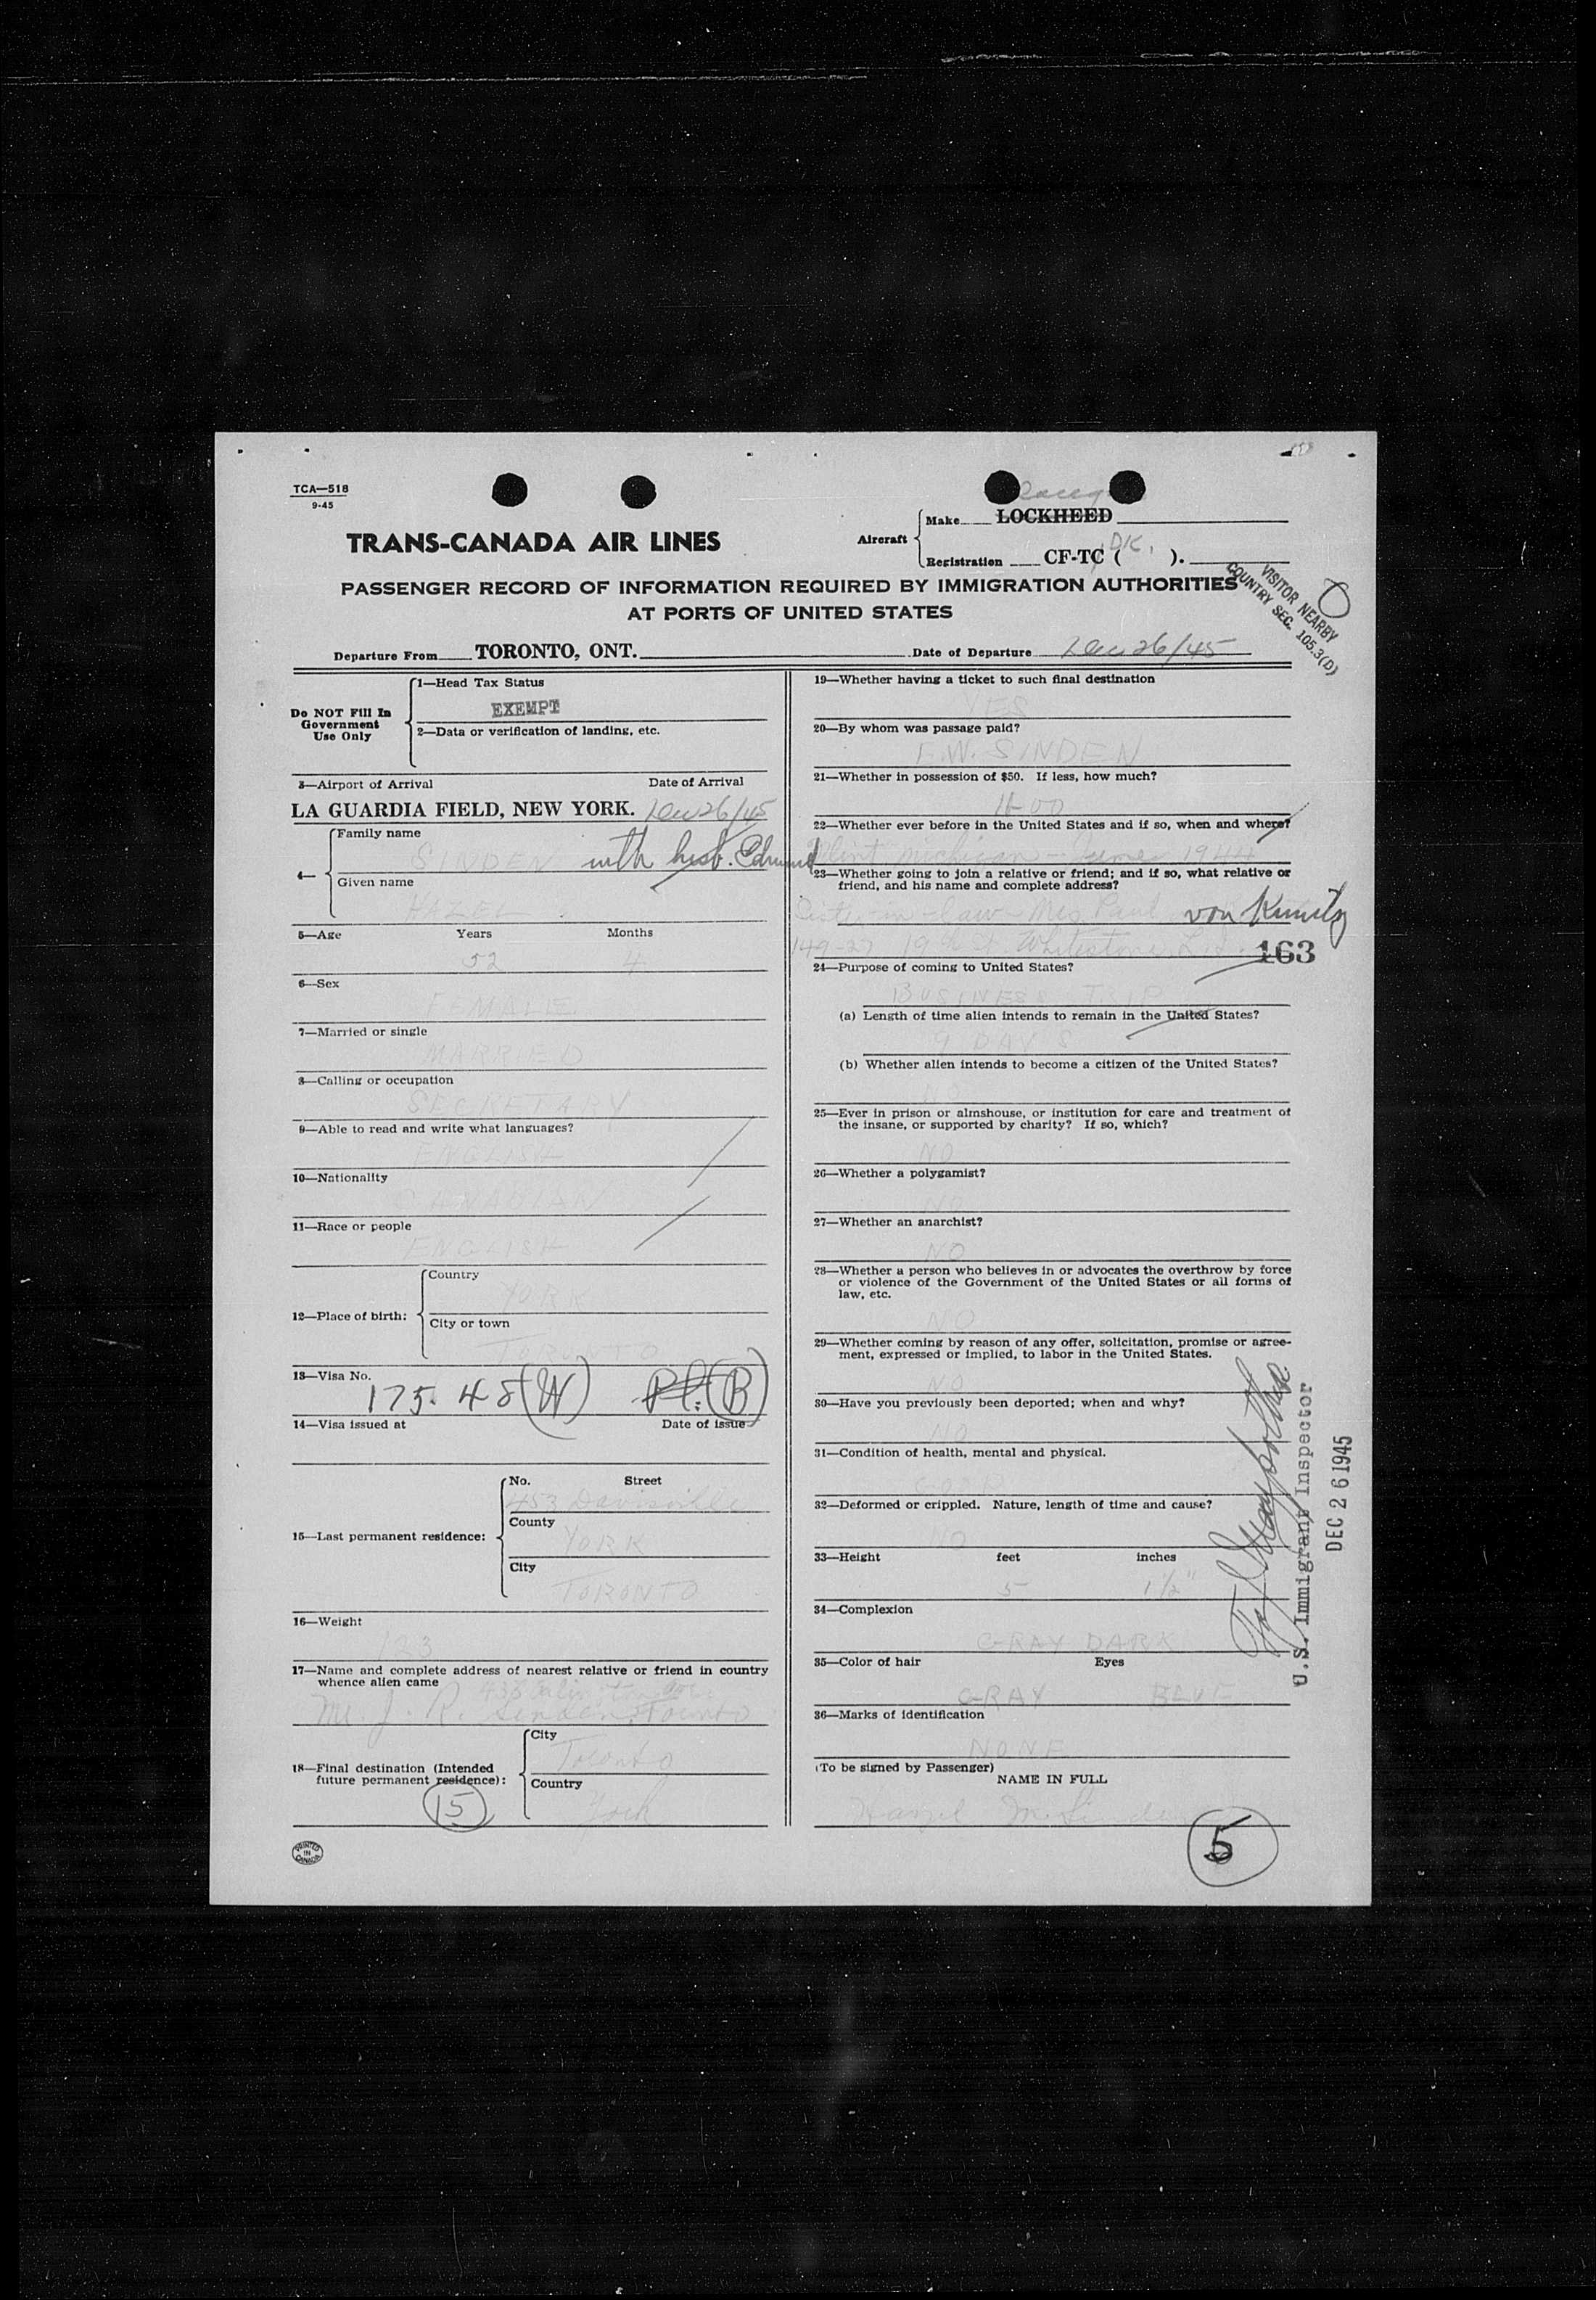 TCA—518
9-45
TRANS-CANADA AIR LINES
Aircraft
Make LOCKHEED
Registration CF-TC ( DK. ).
PASSENGER RECORD OF INFORMATION REQUIRED BY IMMIGRATION AUTHORITIES
AT PORTS OF UNITED STATES
VISITOR NEARBY
COUNTRY SEC. 105.3(D)
Departure From TORONTO, ONT. Date of Departure Dec 26/45
Do NOT Fill In
Government
Use Only
1—Head Tax Status
EXEMPT
2—Data or verification of landing, etc.
3—Airport of Arrival Date of Arrival
LA GUARDIA FIELD, NEW YORK. Dec 26/45
4—
Family name
SINDEN with husb. Edmund
Given name
HAZEL
5—Age Years Months
52 4
6—Sex
FEMALE
7—Married or single
MARRIED
8—Calling or occupation
SECRETARY
9—Able to read and write what languages?
ENGLISH
10—Nationality
CANADIAN
11—Race or people
ENGLISH
12—Place of birth:
Country
YORK
City or town
13—Visa No.
175.45 (W) Pl. (B)
14—Visa issued at Date of issue
15—Last permanent residence:
No. Street
453 Davisville
County
YORK
City
TORONTO
16—Weight
123
17—Name and complete address of nearest relative or friend in country
whence alien came
Mr. J. R. Sinden Toronto
18—Final destination (Intended
future permanent residence):
City
Toronto
Country
York
15
PRINTED
IN
CANADA
19—Whether having a ticket to such final destination
YES
20—By whom was passage paid?
E.W. SINDEN
21—Whether in possession of $50. If less, how much?
22—Whether ever before in the United States and if so, when and where?
Flint Michigan June 1944
23—Whether going to join a relative or friend; and if so, what relative or
friend, and his name and complete address?
Sister-in-law - Mrs Paul von Kunitz
149-27 19th Whitestone L.I.
163
24—Purpose of coming to United States?
BUSINESS TRIP
(a) Length of time alien intends to remain in the United States?
9 DAYS
(b) Whether alien intends to become a citizen of the United States?
25—Ever in prison or almshouse, or institution for care and treatment of
the insane, or supported by charity? If so, which?
NO
26—Whether a polygamist?
27—Whether an anarchist?
NO
28—Whether a person who believes in or advocates the overthrow by force
or violence of the Government of the United States or all forms of
law, etc.
NO
29—Whether coming by reason of any offer, solicitation, promise or agree-
ment, expressed or implied, to labor in the United States.
NO
30—Have you previously been deported; when and why?
NO
31—Condition of health, mental and physical.
GOOD
32—Deformed or crippled. Nature, length of time and cause?
NO
33—Height feet inches
5 1 1/2"
34—Complexion
GRAY DARK
35—Color of hair Eyes
GRAY BLUE
36—Marks of identification
NONE
(To be signed by Passenger)
NAME IN FULL
Hazel M. Sinden
5
U.S. Immigrant Inspector
DEC 26 1945